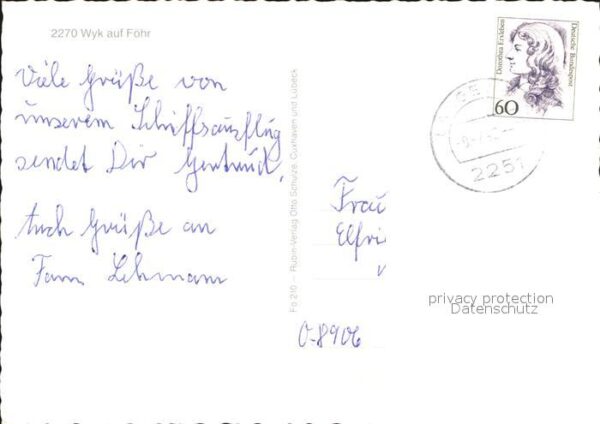 2270 Wyk auf Föhr
Viele Grüße von
unserem Schiffsausflug
sendet Dir Gertrud.
Auch Grüße an
Fam. Lehmann
Fo 210 — Rubin-Verlag Otto Schulze, Cuxhaven und Lübeck
Dorothea Erxleben
Deutsche Bundespost
60
2251
Frau
Elfri
O-8906
privacy protection
Datenschutz